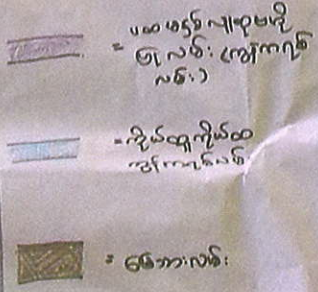 = ပထမနှစ်လူထုမဟို
ပြု လမ်း (ကွန်ကရစ်
လမ်း)
= ကိုယ်ထူကိုယ်ထ
ကွန်ကရစ်လမ်း
= မြေသားလမ်း